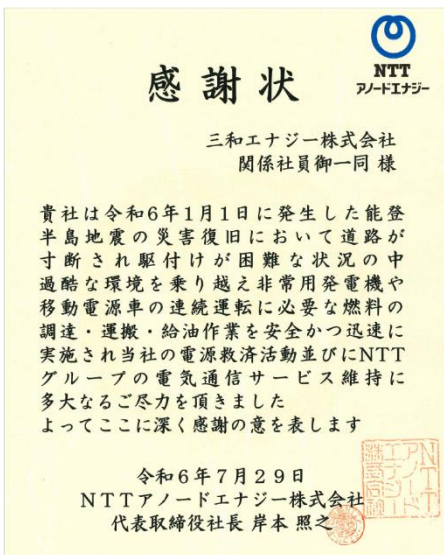 NTT
アノードエナジー
感謝状
三和エナジー株式会社
関係社員御一同 様
貴社は令和6年1月1日に発生した能登
半島地震の災害復旧において道路が
寸断され駆付けが困難な状況の中
過酷な環境を乗り越え非常用発電機や
移動電源車の連続運転に必要な燃料の
調達・運搬・給油作業を安全かつ迅速に
実施され当社の電源救済活動並びにNTT
グループの電気通信サービス維持に
多大なるご尽力を頂きました
よってここに深く感謝の意を表します
令和6年7月29日
NTTアノードエナジー株式会社
代表取締役社長 岸本 照之